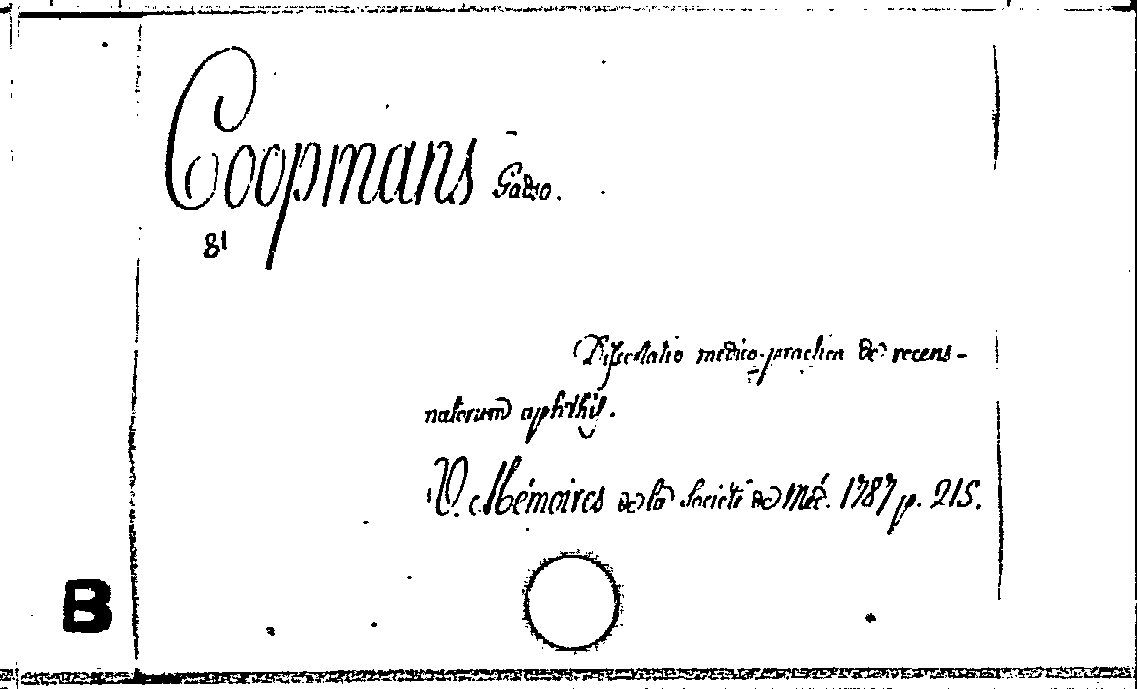 Coopmans Gadso.
81
Dissertatio medico-practica de recens-
natorum aphthis.
V. Mémoires de la Société de Méd. 1787 p. 215.
B